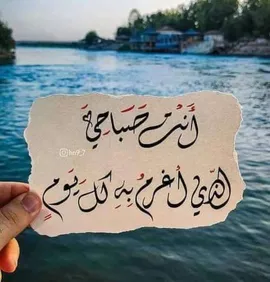 أَنْت صَبَاحِيَ
الذّي أغرمُ بِهِ كلَ يَومٍ